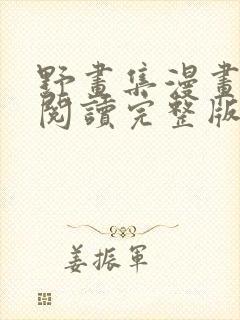 野畫集漫畫
閱讀完整版
姜振軍